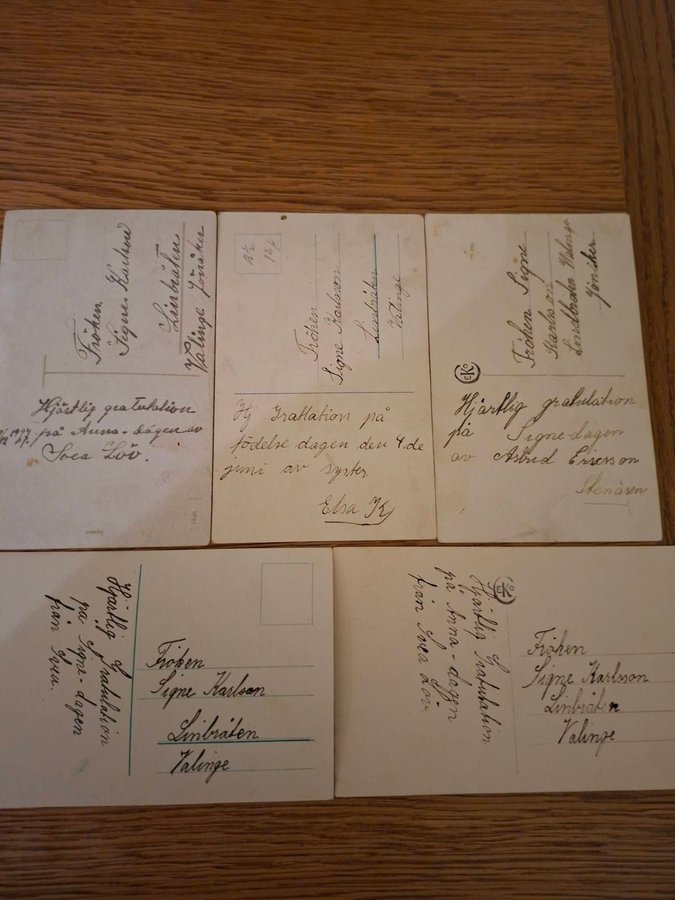 Fröken
Signe Karlsson
Linbråten
Valinge Jönåker
Hjärtlig gratulation
på Anna-dagen av
Svea Löv.
Fröken
Signe Karlsson
Linbråten
Valinge
Hj Grattlation på
födelse dagen den 4.de
juni av syster
Elsa K
Fröken Signe
Karlsson
Lindbråten Valinge
Jönåker
Hjärtlig gratulation
på Signedagen
av Astrid Ericsson
Stenåsen
Hjärtlig Gratulation
på Signe-dagen
från Svea.
Fröken
Signe Karlson
Linbråten
Valinge
Hjärtlig Gratulation
på Anna-dagen
från Svea Löv.
Fröken
Signe Karlsson
Linbråten
Valinge